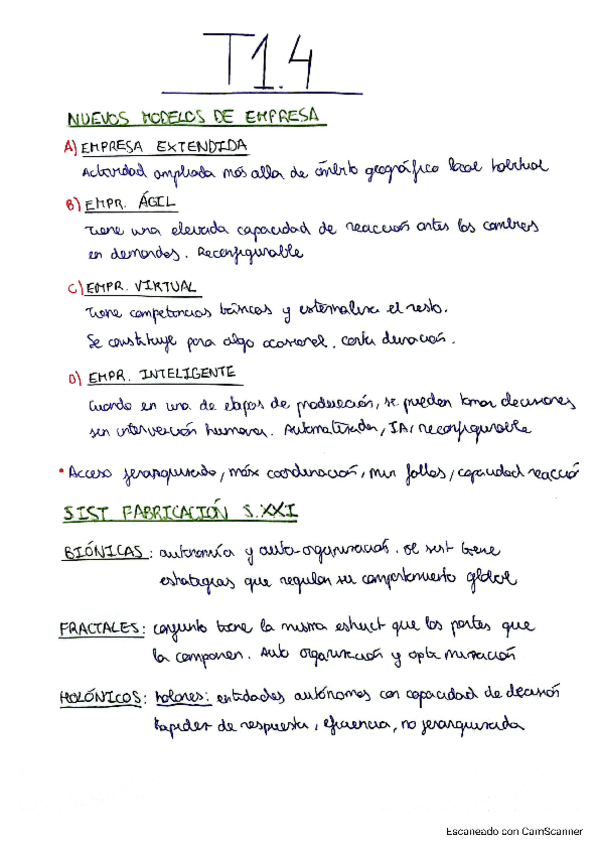 T1.4
NUEVOS MODELOS DE EMPRESA
A) EMPRESA EXTENDIDA
Actividad ampliada más alla de ámbito geográfico local habitual
B) EMPR. ÁGIL
Tiene una elevada capacidad de reacción antes los cambios
en demandas. Reconfigurable
C) EMPR. VIRTUAL
Tiene competencias básicas y externaliza el resto.
Se constituye para algo ocasional. corta duración.
D) EMPR. INTELIGENTE
Cuando en una de etapas de producción, se pueden tomar decisiones
sin intervención humana. Automatizada, IA, reconfigurable
• Acceso jerarquizado, máx coordinación, min fallos, capacidad reacció
SIST FABRICACIÓN S.XXI
BIÓNICAS: autonomía y auto-organización. el sist tiene
estrategias que regulan su comportamiento global
FRACTALES: conjunto tiene la misma estruct que las partes que
la componen. Auto organización y optimización
HOLÓNICOS: holones: entidades autónomas con capacidad de decisión
Rapidez de respuesta, eficiencia, no jerarquizada
Escaneado con CamScanner